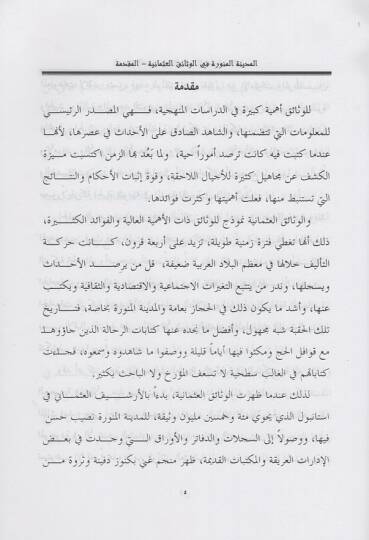 المدينة المنورة في الوثائق العثمانية – المقدمة
مقدمة
للوثائق أهمية كبيرة في الدراسات المنهجية، فهي المصدر الرئيسي
للمعلومات التي تتضمنها، والشاهد الصادق على الأحداث في عصرها، لأنها
عندما كتبت فيه كانت ترصد أموراً حية، ولما بَعُد بها الزمن اكتسبت ميزة
الكشف عن مجاهيل كثيرة للأجيال اللاحقة، وقوة إثبات الأحكام والنتائج
التي تستنبط منها، فعلت أهميتها وكثرت فوائدها.
والوثائق العثمانية نموذج للوثائق ذات الأهمية العالية والفوائد الكثيرة،
ذلك أنها تغطي فترة زمنية طويلة، تزيد على أربعة قرون، كانت حركة
التأليف خلالها في معظم البلاد العربية ضعيفة، قل من يرصد الأحداث
ويسجلها، وندر من يتتبع التغيرات الاجتماعية والاقتصادية والثقافية ويكتب
عنها، وأشد ما يكون ذلك في الحجاز بعامة والمدينة المنورة بخاصة، فتاريخ
تلك الحقبة شبه مجهول، وأفضل ما نجده عنها كتابات الرحالة الذين جاؤوها
مع قوافل الحج ومكثوا فيها أياماً قليلة ووصفوا ما شاهدوه وسمعوه، فجاءت
كتاباتهم في الغالب سطحية لا تسعف المؤرخ ولا الباحث بكثير.
لذلك عندما ظهرت الوثائق العثمانية، بدءاً بالأرشيف العثماني في
استانبول الذي يحوي مئة وخمسين مليون وثيقة، للمدينة المنورة نصيب حسن
فيها، ووصولاً إلى السجلات والدفاتر والأوراق التي وجدت في بعض
الإدارات العريقة والمكتبات القديمة، ظهر منجم غني بكنوز دفينة وثروة من
٥